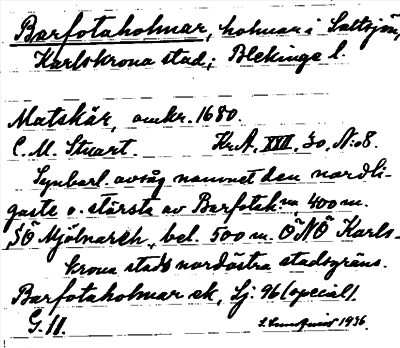 Barfotaholmar, holmar i Saltsjön,
Karlskrona stad; Blekinge l.
Matskär, omkr. 1680.
C. M. Stuart. Kr.A., XXII, 30, N:o 8.
Synbarl. avsåg namnet den nordli-
gaste o. största av Barfotah:na, 400 m.
SÖ Mjölnareh., bel. 500 m. ÖNÖ Karls-
krona stads nordöstra stadsgräns.
Barfotaholmar ek, Lj. 96 (special).
G. 11. 1936.